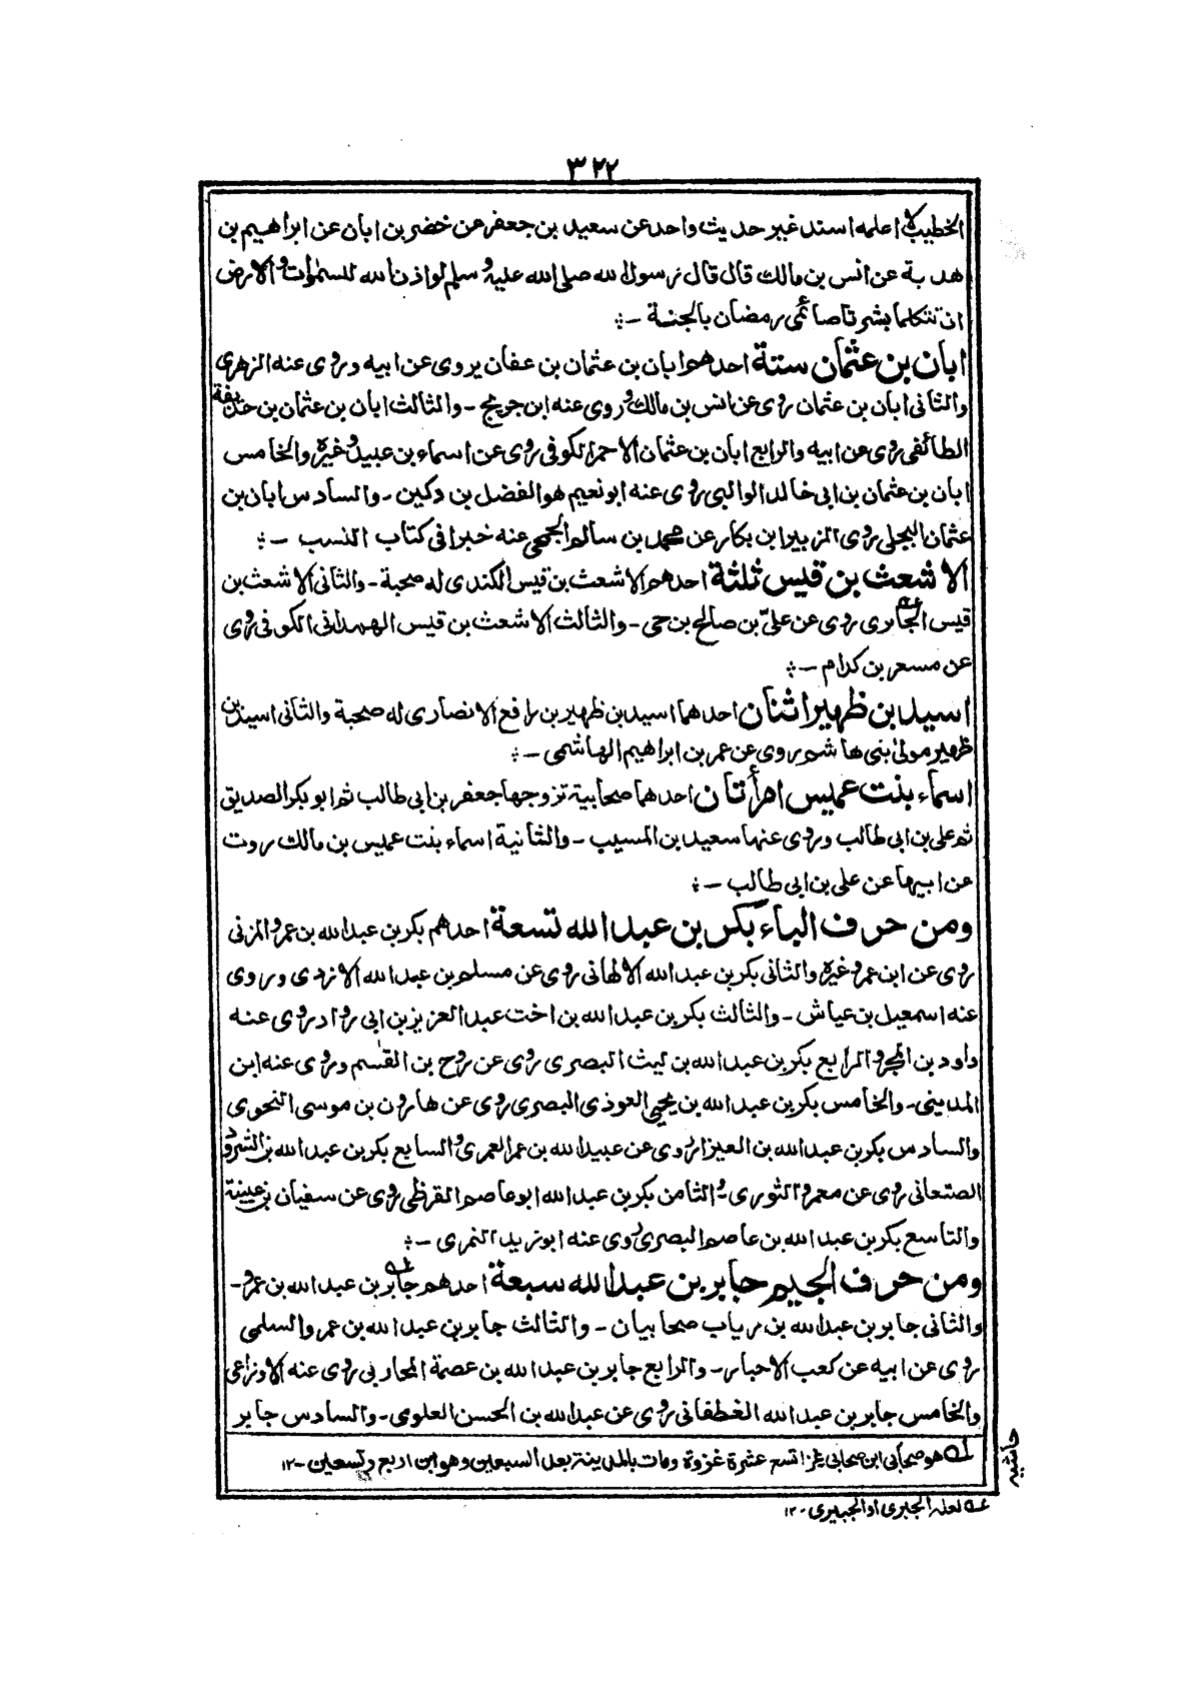 ٣٢٢
الخطيب لا اعلمه اسند غير حديث واحد عن سعيد بن جعفر عن خضر بن ابان عن ابراهيم بن
هدبة عن انس بن مالك قال قال رسول الله صلى الله عليه وسلم لو اذن الله للسمٰوات والارض
ان تتكلما بشرتا صائمى رمضان بالجنة -
ابان بن عثمان ستة احدهم ابان بن عثمان بن عفان يروى عن ابيه وروى عنه الزهرى
والثانى ابان بن عثمان روى عن انس بن مالك وروى عنه ابن جريج - والثالث ابان بن عثمان بن حذيفة
الطائفى روى عن ابيه والرابع ابان بن عثمان الاحمر الكوفى روى عن اسماء بن عبيد وغيره والخامس
ابان بن عثمان بن ابى خالد الوالبى روى عنه ابو نعيم هو الفضل بن دكين - والسادس ابان بن
عثمان البجلى روى الزبير ابن بكار عن محمد بن سالم الجمحى عنه خبرا فى كتاب النسب -
الاشعث بن قيس ثلثة احدهم الاشعث بن قيس الكندى له صحبة - والثانى الاشعث بن
قيس الجابرى روى عن علىّ بن صالح بن حى - والثالث الاشعث بن قيس الهمدانى الكوفى روى
عن مسعر بن كدام -
اسيد بن ظهير اثنان احدهما اسيد بن ظهير بن رافع الانصارى له صحبة والثانى اسيد بن
ظهير مولىٰ بنى هاشم يروى عن عمر بن ابراهيم الهاشمى -
اسماء بنت عميس امرأتان احدهما صحابية تزوجها جعفر بن ابى طالب ثم ابو بكر الصديق
ثم على بن ابى طالب وروى عنها سعيد بن المسيب - والثانية اسماء بنت عميس بن مالك روت
عن ابيها عن على بن ابى طالب -
ومن حرف الباء بكر بن عبد الله تسعة احدهم بكر بن عبد الله بن عمرو المزنى
روى عن ابن عمر وغيره والثانى بكر بن عبد الله الالهانى روى عن مسلم بن عبد الله الازدى وروى
عنه اسمعيل بن عياش - والثالث بكر بن عبد الله بن اخت عبد العزيز بن ابى رواد روى عنه
داود بن المحبر والرابع بكر بن عبد الله بن ليث البصرى روى عن روح بن القٰسم وروى عنه ابن
المدينى - والخامس بكر بن عبد الله بن يحيى العوذى البصرى روى عن هارون بن موسى النحوى
والسادس بكر بن عبد الله بن العيزار روى عن عبيد الله بن عمر العمرى والسابع بكر بن عبد الله بن الشرود
الصنعانى روى عن معمر والثورى - والثامن بكر بن عبد الله ابو عاصم القرظى روى عن سفيان بن عيينة
والتاسع بكر بن عبد الله بن عاصم البصرى روى عنه ابو زيد النمرى -
ومن حرف الجيم جابر بن عبد الله سبعة احدهم جابر بن عبد الله بن عمرو -
والثانى جابر بن عبد الله بن رياب صحابيان - والثالث جابر بن عبد الله بن عمرو السلمى
روى عن ابيه عن كعب الاحبار - والرابع جابر بن عبد الله بن عصمة المحاربى روى عنه الاوزاعى
والخامس جابر بن عبد الله الغطفانى روى عن عبد الله بن الحسن العلوى - والسادس جابر
له هو صحابى ابن صحابى غزا تسع عشرة غزوة ومات بالمدينة بعد السبعين وهو ابن اربع وتسعين - ١٢
حاشيه
عه لعله الجبرى او الجبيرى - ١٢